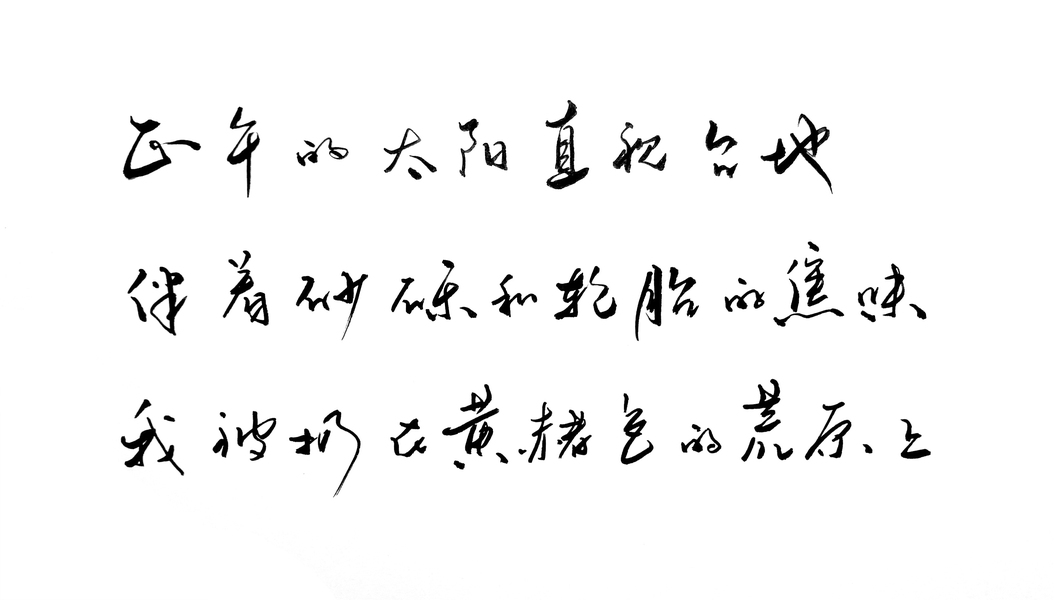 正午的太阳直视台地
伴着砂砾和轮胎的焦味
我被扔在黄赭色的荒原上